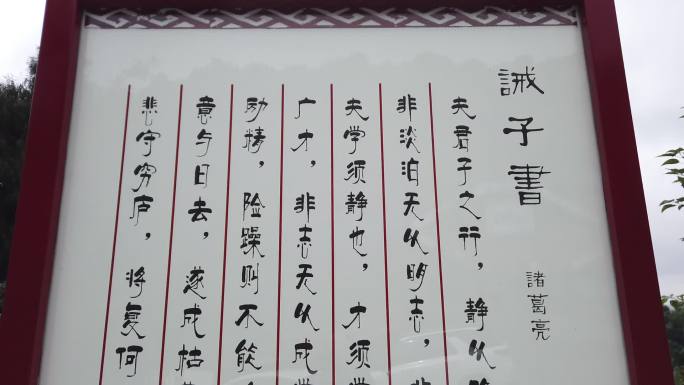 誡子書
諸葛亮
夫君子之行，静以
非淡泊无以明志，非
夫学须静也，才须学
广才，非志无以成学
励精，险躁则不能
意与日去，遂成枯
悲守穷庐，将复何